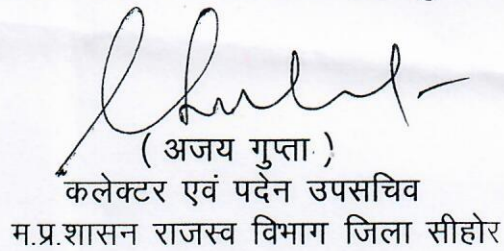 ( अजय गुप्ता )
कलेक्टर एवं पदेन उपसचिव
म.प्र.शासन राजस्व विभाग जिला सीहोर